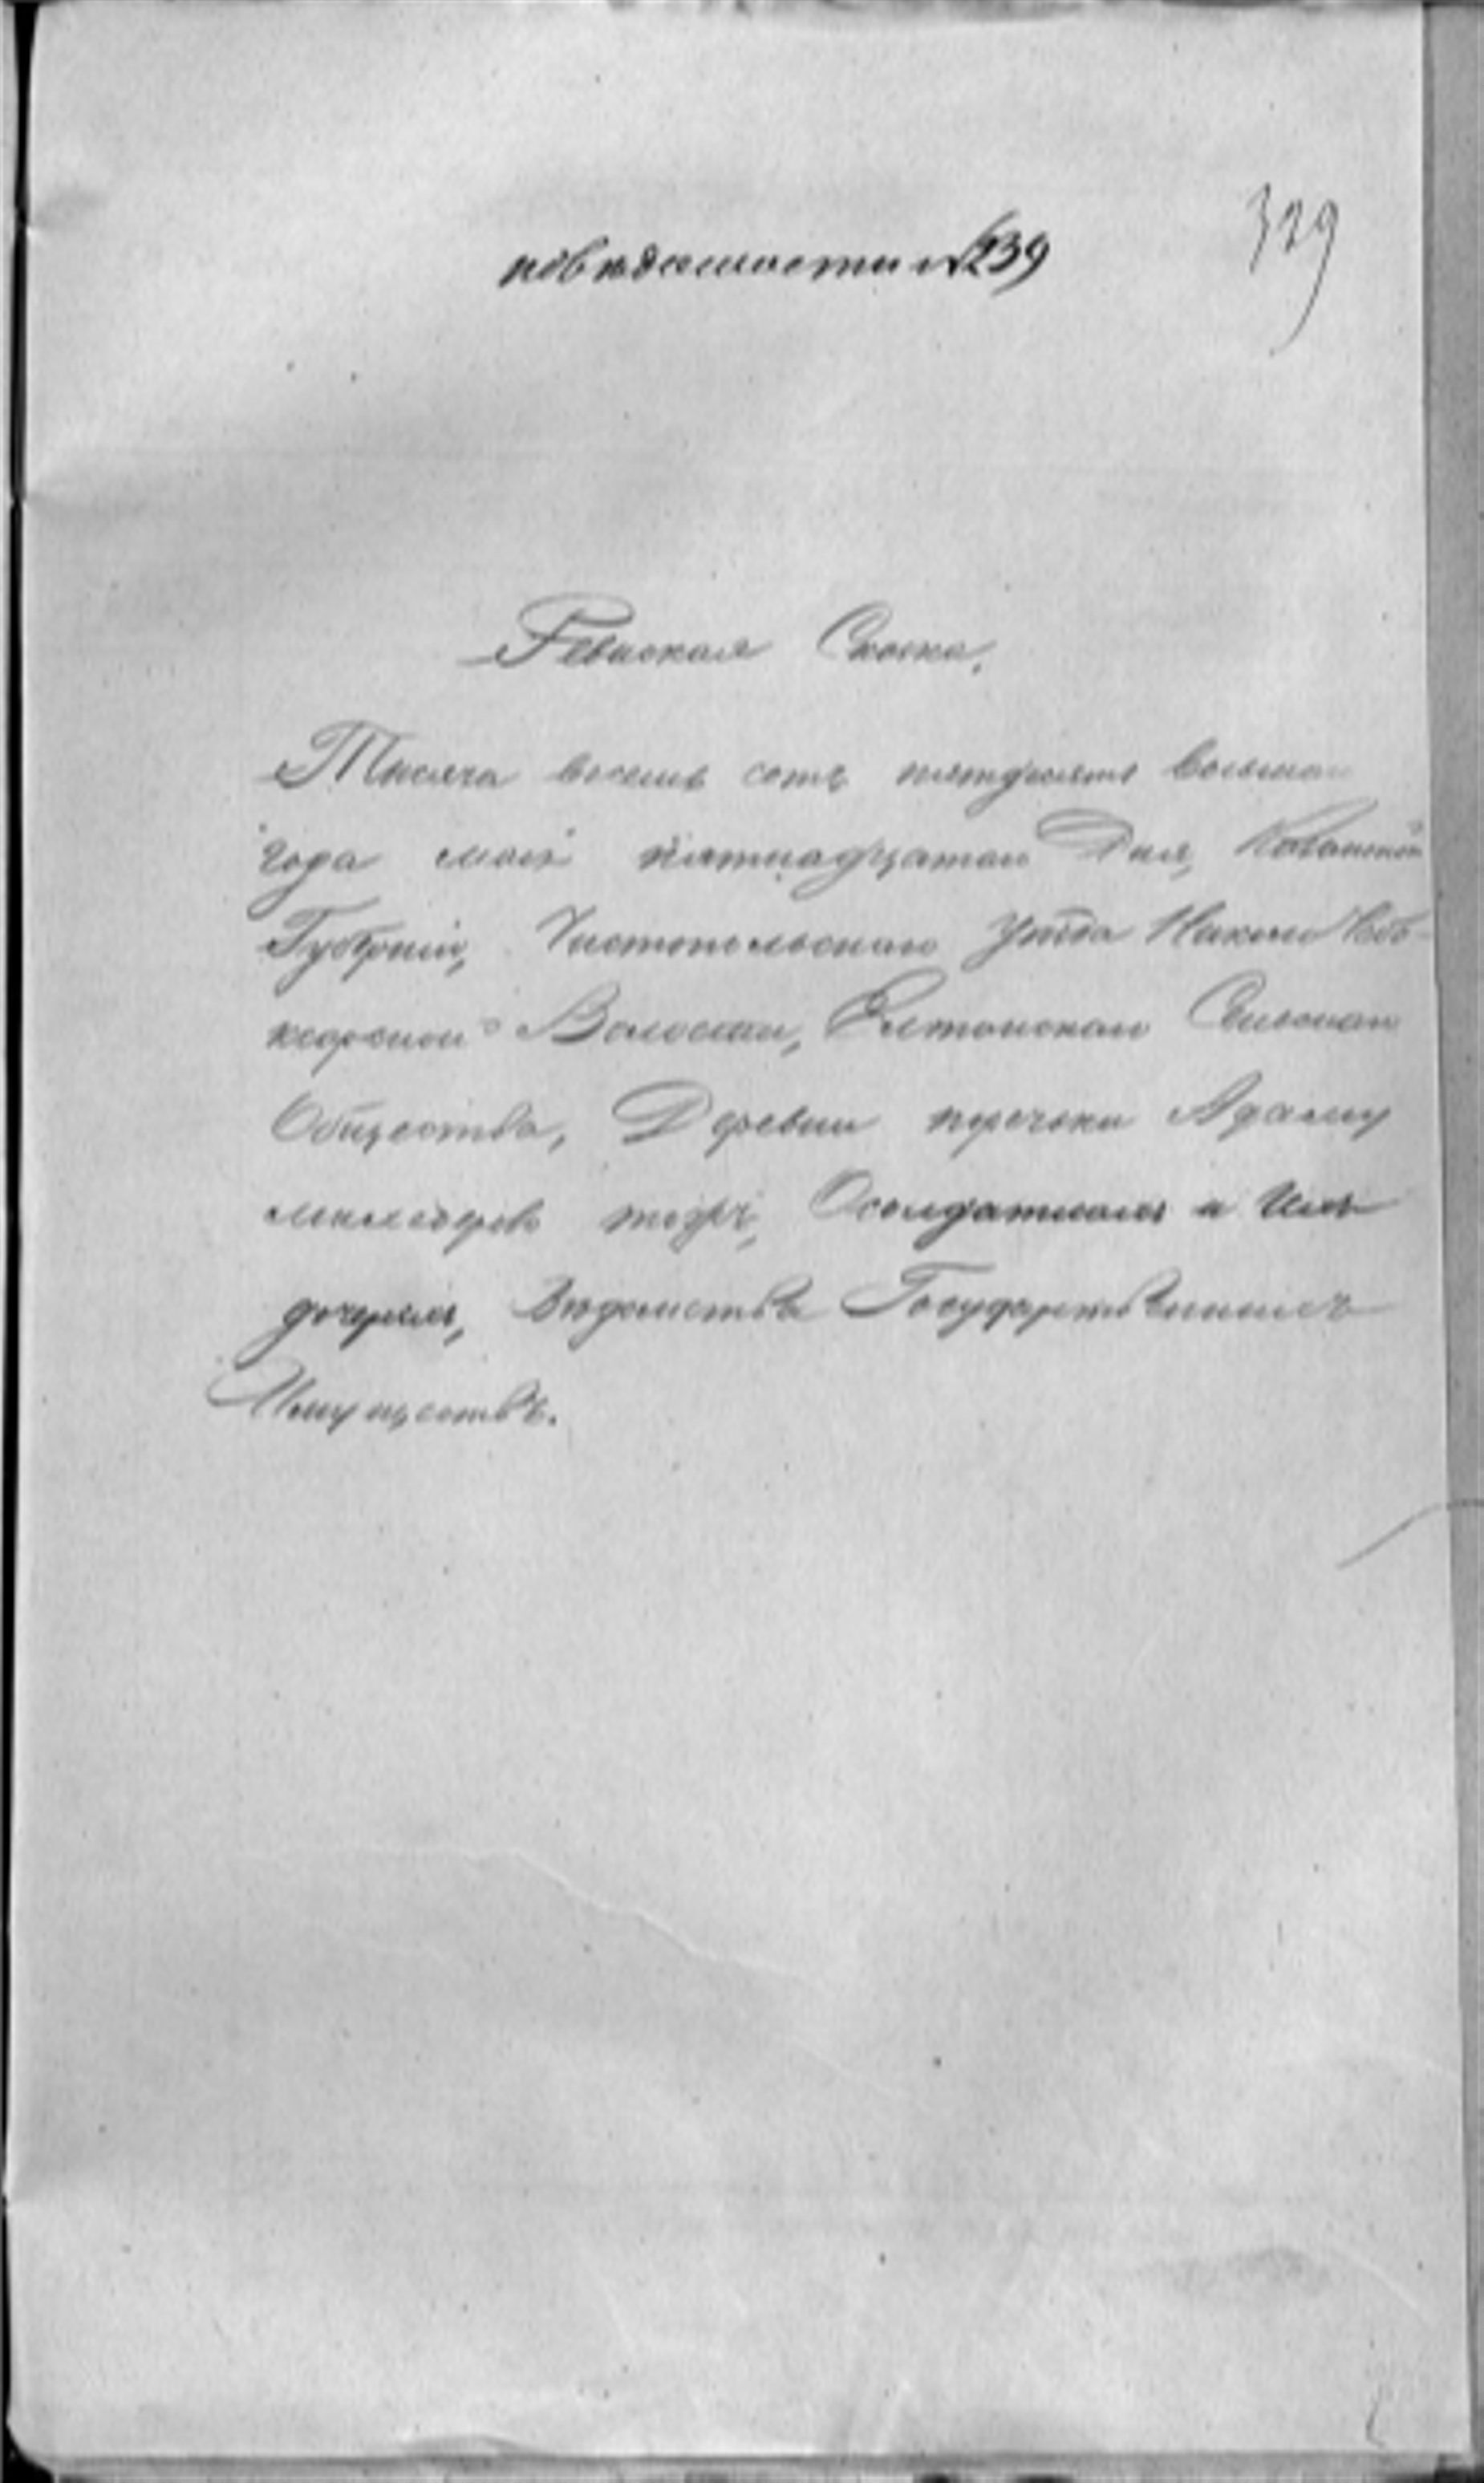 по вѣдомости №239
329
Ревиская Скаска.
Тысяча восемь сотъ пятдесятъ восьмаго
года мая пятнадцатаго Дня, Казанской
Губерніи, Чистопольскаго уѣзда
Волости, Елтанскаго Сельскаго
Общества, Деревни
О солдаткахъ и ихъ
дочеряхъ, Вѣдомства Государственныхъ
Имуществъ.